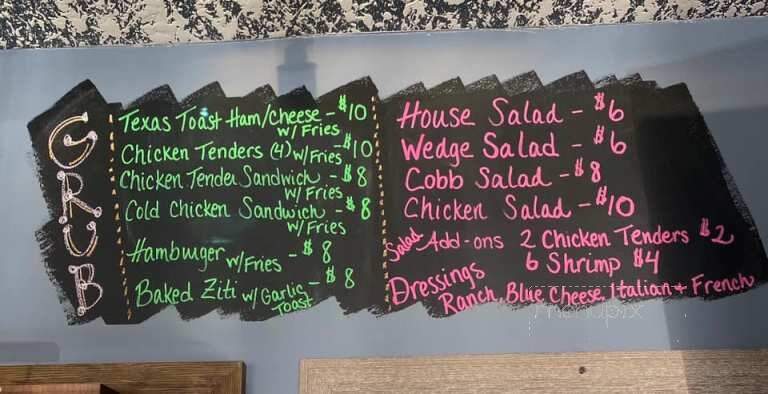 GRUB
Texas Toast Ham/Cheese - $10
w/ Fries
Chicken Tenders (4) w/ Fries - $10
Chicken Tender Sandwich - $8
w/ Fries
Cold Chicken Sandwich - $8
w/ Fries
Hamburger w/ Fries - $8
Baked Ziti w/ Garlic Toast - $8
House Salad - $6
Wedge Salad - $6
Cobb Salad - $8
Chicken Salad - $10
Salad Add-ons 2 Chicken Tenders $2
6 Shrimp $4
Dressings
Ranch, Blue Cheese, Italian + French
menupix